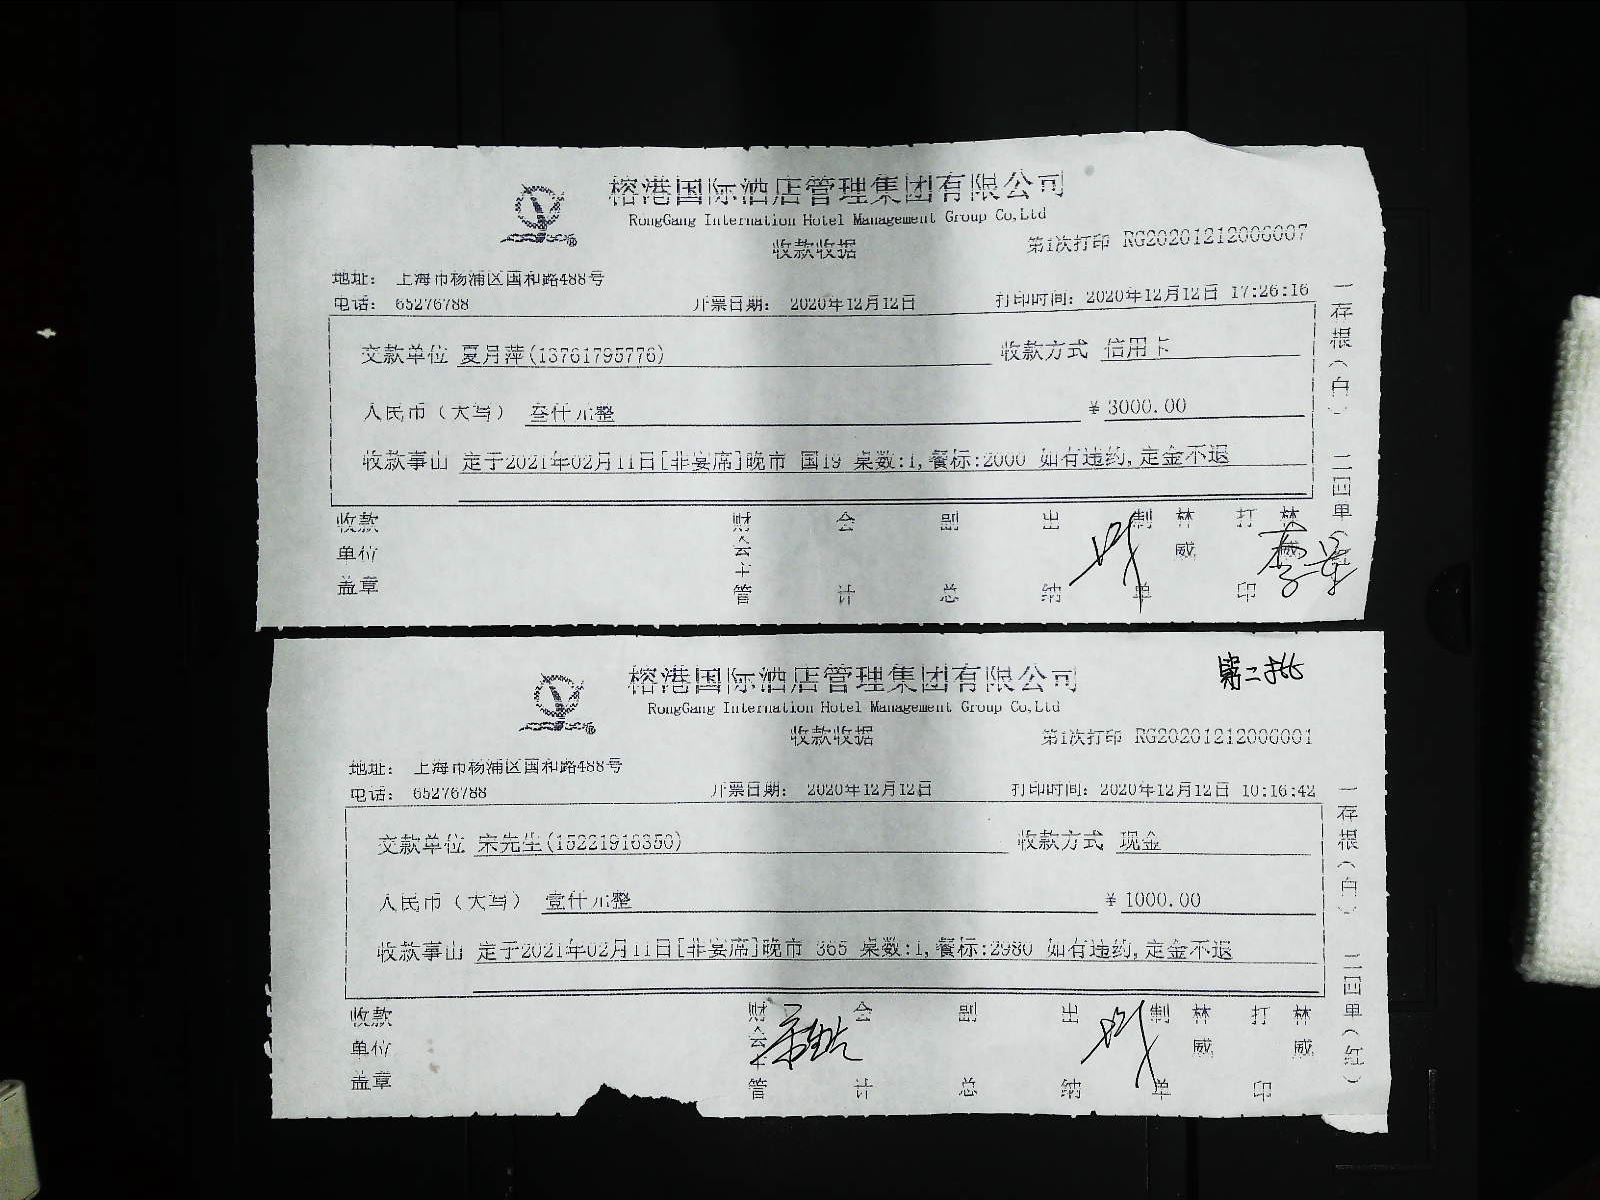 榕港国际酒店管理集团有限公司
RongGang Internation Hotel Management Group Co,Ltd
收款收据
第1次打印 RG20201212006007
地址: 上海市杨浦区国和路488号
电话: 65276788 开票日期: 2020年12月12日 打印时间: 2020年12月12日 17:26:16
交款单位 夏月萍(13761795776) 收款方式 信用卡
人民币(大写) 叁仟元整 ¥ 3000.00
收款事由 定于2021年02月11日[非宴席]晚市 国19 桌数:1,餐标:2000 如有违约,定金不退
收款单位盖章 财会主管 会计 副总 出纳 制单 林威 打印 林威
一存根(白) 二回单(
榕港国际酒店管理集团有限公司
第二批
RongGang Internation Hotel Management Group Co,Ltd
收款收据
第1次打印 RG20201212006001
地址: 上海市杨浦区国和路488号
电话: 65276788 开票日期: 2020年12月12日 打印时间: 2020年12月12日 10:16:42
交款单位 宋先生(15221916350) 收款方式 现金
人民币(大写) 壹仟元整 ¥ 1000.00
收款事由 定于2021年02月11日[非宴席]晚市 365 桌数:1,餐标:2980 如有违约,定金不退
收款单位盖章 财会主管 会计 副总 出纳 制单 林威 打印 林威
一存根(白) 二回单(红)